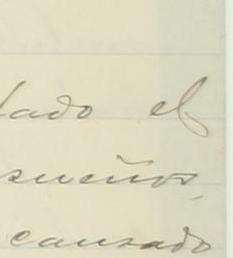 lado el
sueños,
causado